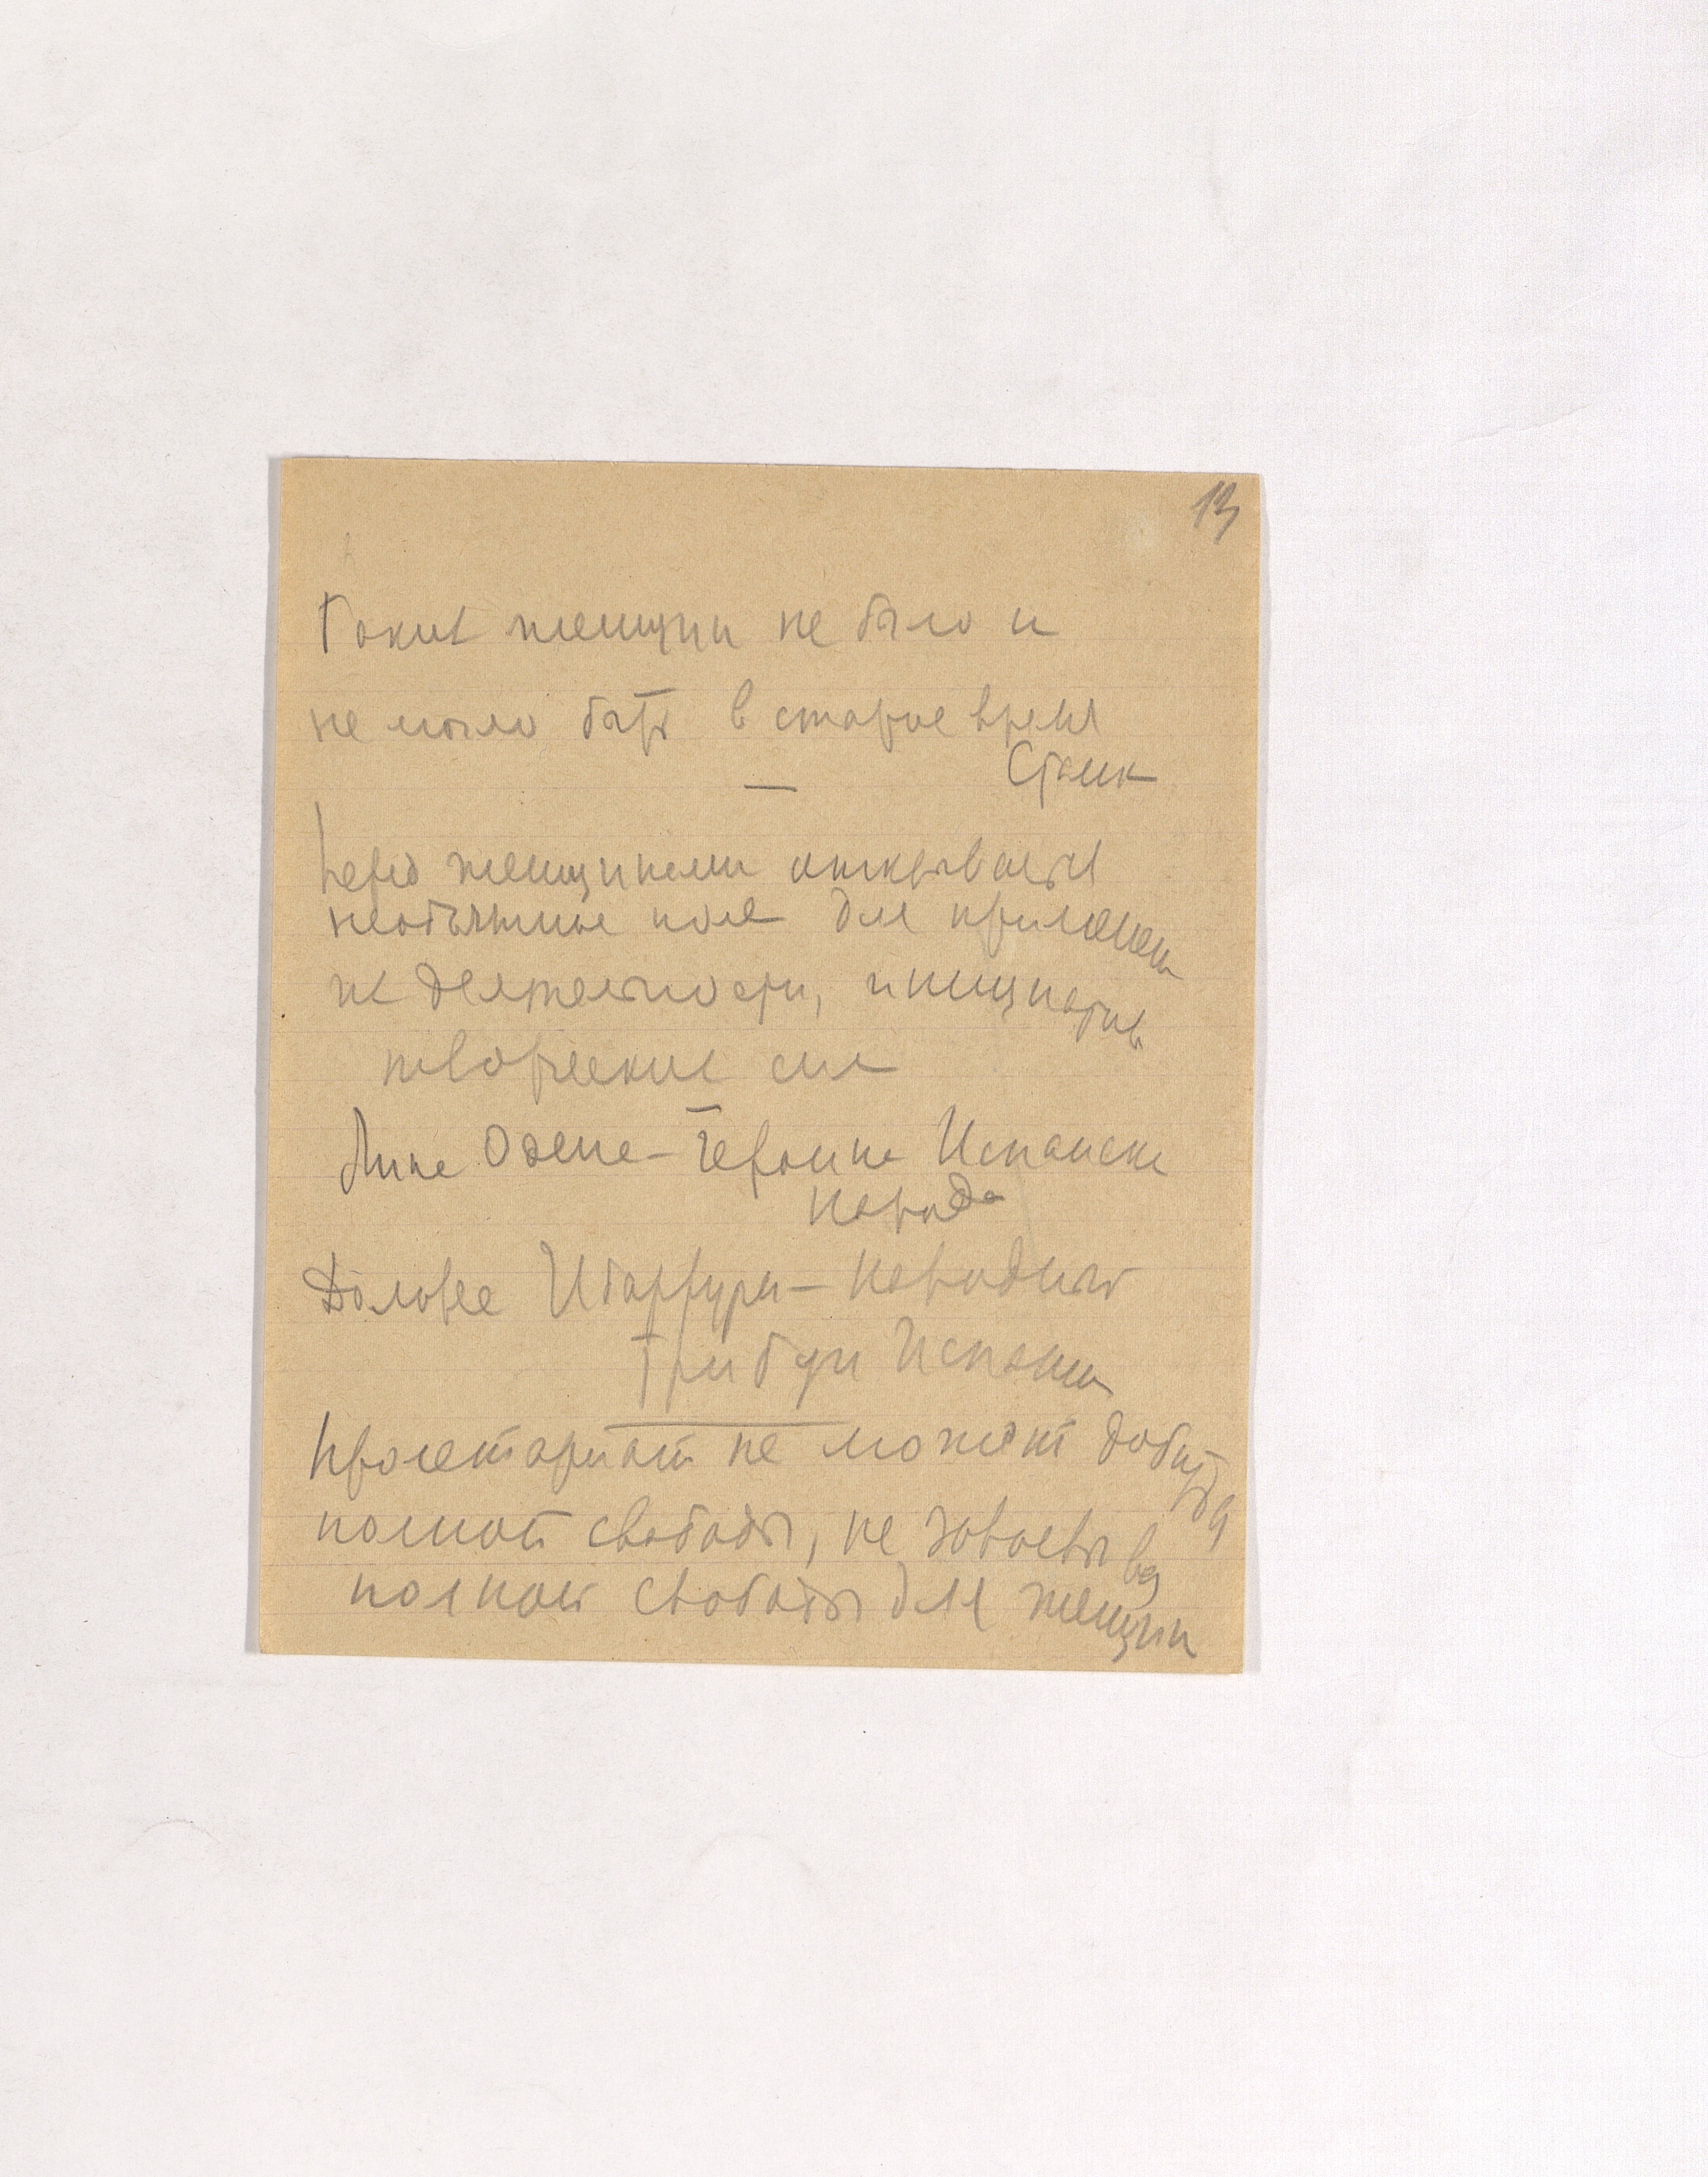 13
Таких женщин не было и
не могло быть в старое время
Сталин
—
Перед женщинами открывается
необъятное поле для приложения
их деятельности, инициативы
творческих сил
—
Лина Одена – героиня Испанск
народа
Долорес Ибаррури – народный
трибун Испании
Пролетариат не может добиться
полной свободы, не завоевывая
полной свободы для женщин